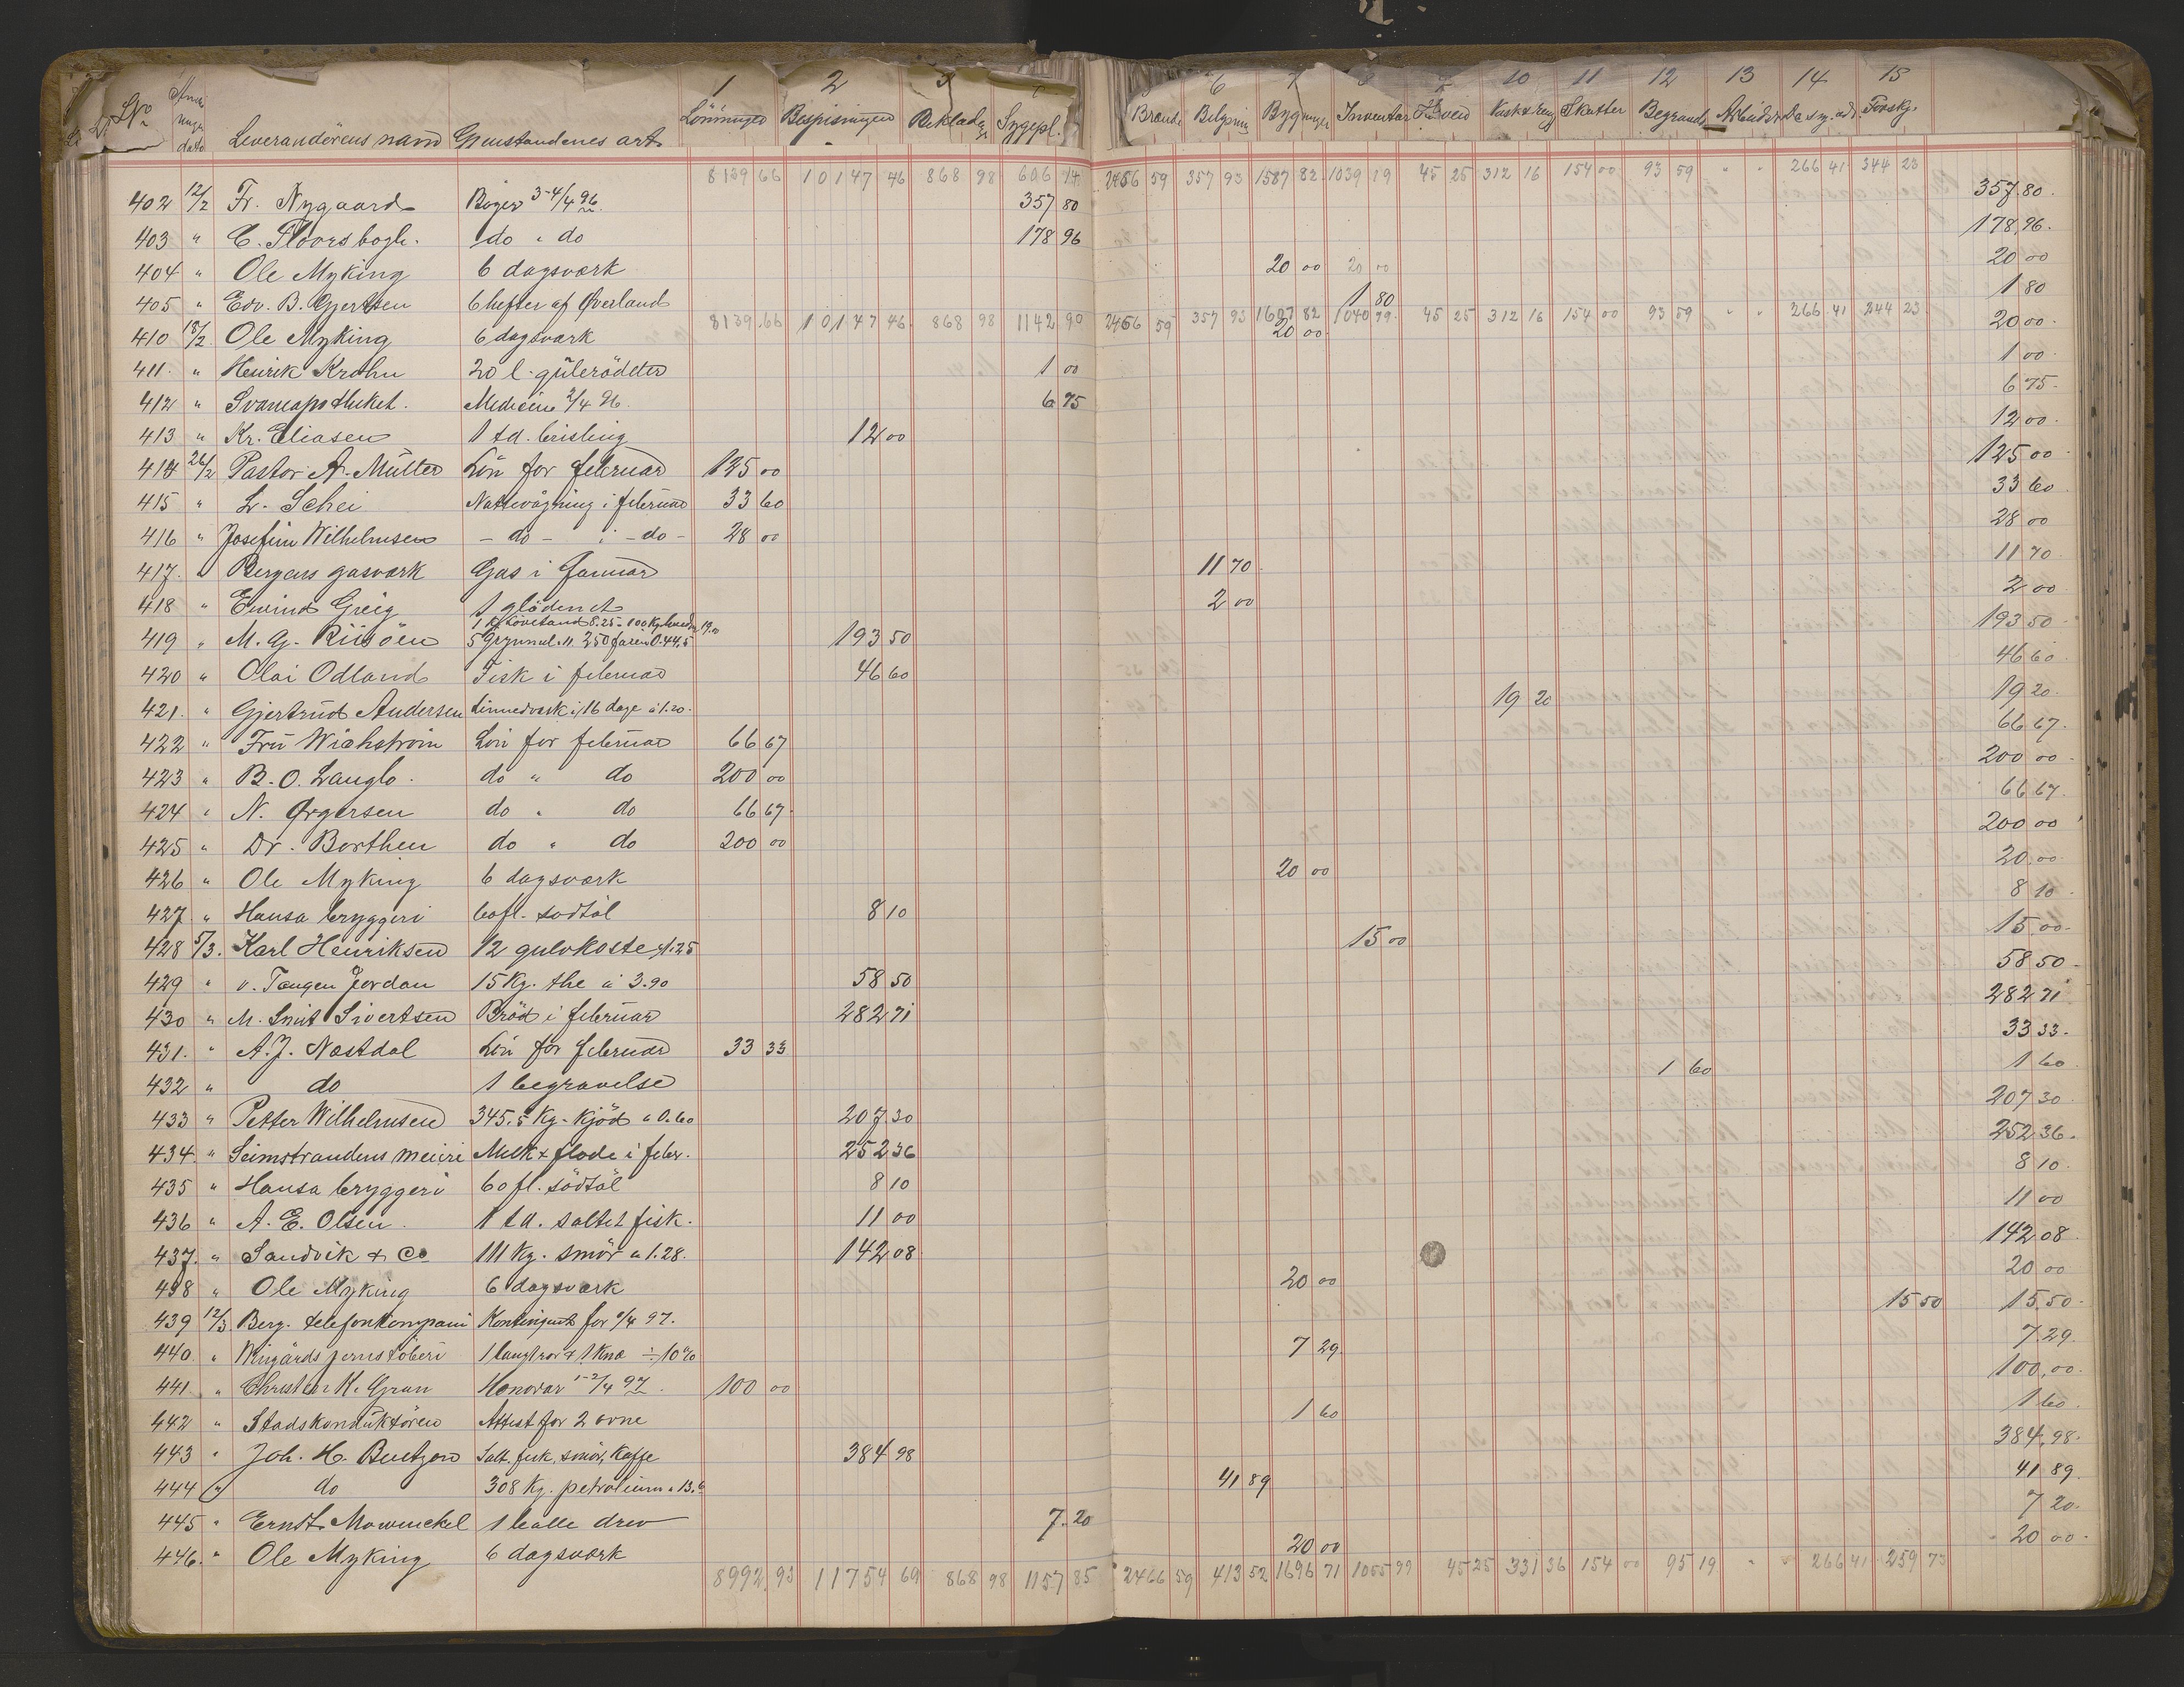 1 2 3 6 7 8 9 10 11 12 13 14 15
No Leverandörens navn Gjenstandenes art Lönninger Bespisningen Beklædn Sygepl. Brænde Belysning Bygninger Inventar Skatter Begravels Forskj.
8139 66 10147 46 868 98 606 14 2466 59 357 93 1587 82 1039 19 45 25 312 16 154 00 93 59 " " 266 41 244 23
402 12/2 Fr. Nygaard Böger 3-4/4 96. 357 80 357,80.
403 " C. Floors bogh. do " do 178 96 178,96.
404 " Ole Myking 6 dagsværk 20 00 20 00 20 00
405 " Edv. B. Gjertsen 6 hefter af Øverland 1 80 1 80
8139.66 10147 46 868 98 1142 90 2466 59 357 93 1607 82 1040 99 45 25 312 16 154 00 93 59 " " 266 41 244 23
410 18/2 Ole Myking 6 dagsværk 20 00 20 00.
411. " Henrik Krohn 20 l. gulerödder 1 00 1 00
412 " Svaneapotheket. Medicin 4/4 96. 6 75 6 75.
413 " Kr. Eliasen 1 td. brisling 12 00 12 00.
414 26/2 Pastor A. Müller Lön for februar 125 00 125 00
415 " L. Schei Nattevågning i februar 33 60 33 60
416 " Josefine Wilhelmsen - do - i - do - 28 00 28 00
417. " Bergens gasværk Gas i Januar 11 70. 11 70
418 " Eivind Grieg 1 glödenet 2 00 2 00
419 " M. G. Riisöen 5 Grynmel. 11 250 farin 0.44,5 193 50 193 50
420 " Olai Odland Fisk i februar 46 60 46 60
421. " Gjertrud Andersen Linnedvask i 16 dage à 1.20. 19 20 19 20.
422 " Fru Wichström Lön for februar 66 67 66 67.
423 " B. O. Langlo. do " do 200 00 200 00
424 " N. Ørgersen do " do 66 67. 66 67.
425 " Dr. Borthen do " do 200 00 200 00
426 " Ole Myking 6 dagsværk 20 00 20 00
427 " Hansa bryggeri 60 fl. sødtöl 8 10 8 10
428 5/3. Karl Henriksen 12 gulvkoste à 1.25 15 00 15 00.
429 " v. Tangen Jordan 15 Kg. the à 3.90 58 50 58 50
430 " M. Smit Sivertsen Bröd i februar 282 71 282 71
431. " A. J. Næstdal Lön for februar 33 33 33 33.
432 " do 1 begravelse 1 60 1 60
433 " Petter Wilhelmsen 345,5 Kg. Kjöd à 0.60 207.30 207 30
434. " Seimstrandens meieri Melk & flöde i febr. 252 36 252 36.
435 " Hansa bryggeri 60 fl. södtöl 8 10 8 10.
436 " A. E. Olsen. 1 td. saltet fisk. 11 00 11 00
437. " Sandvik & Co 111 Kg. smör à 1.28. 142.08 142 08
438 " Ole Myking 6 dagsværk 20 00 20 00
439 12/3 Berg. telefonkompani Kontingent for 2/4 97. 15 50 15,50.
440. " Wingårds jernstöberi 1 ÷ 10% 7 29. 7 29.
441. " Christen K. Gran Honorar 1-2/4 97. 100 00 100,00.
442 " Stadskonduktören Attest for 2 ovne 1 60 1 60.
443 " Joh. H. Buetzow Salt, fisk, smör, Kaffe 384 98 384,98.
444 " do 308 Kg. petroleum à 13.6 41 89 41 89.
445 " Ernst Mowinckel 1 balle drev 7.20 7 20.
446. " Ole Myking 6 dagsværk 20 00 20 00.
8992.93 11754 69 868 98 1157 85 2466 59 413 52 1696 71 1055 99 45 25 331 36 154 00 95 19 " " 266 41 259 73